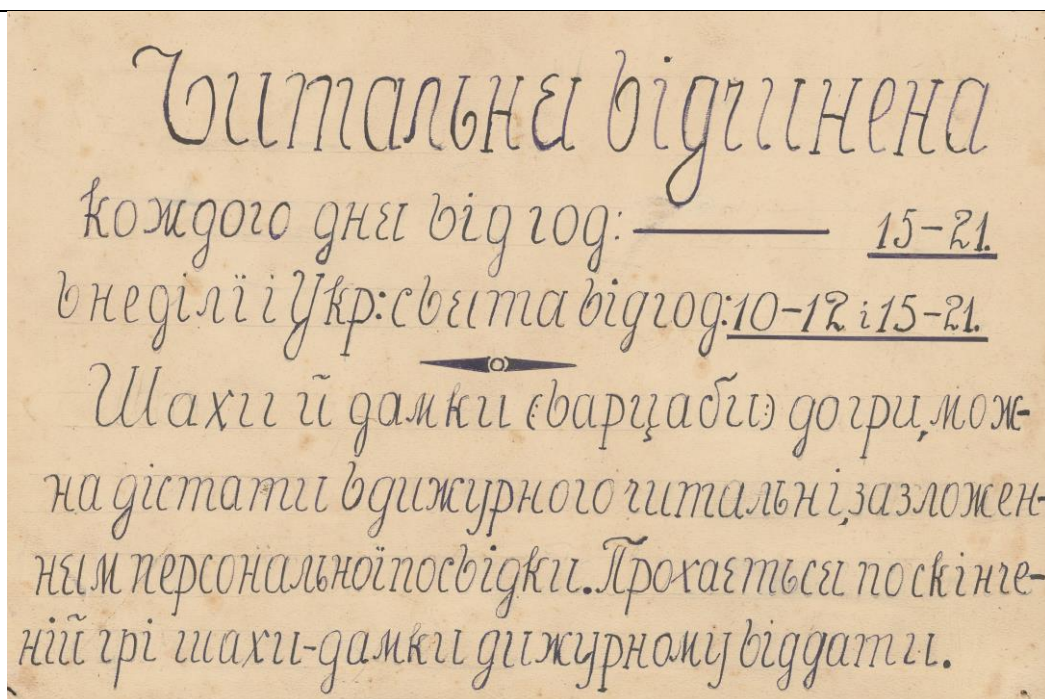 Читальня відчинена
кождого дня від год: — 15-21.
в неділї і Укр: свята від год: 10-12 і 15-21.
Шахи й дамки (:варцаби:) до гри, мож-
на дістати в дижурного читальні, за зложен-
ням персональної посвідки. Прохається по скінче-
ній грі шахи-дамки дижурному віддати.